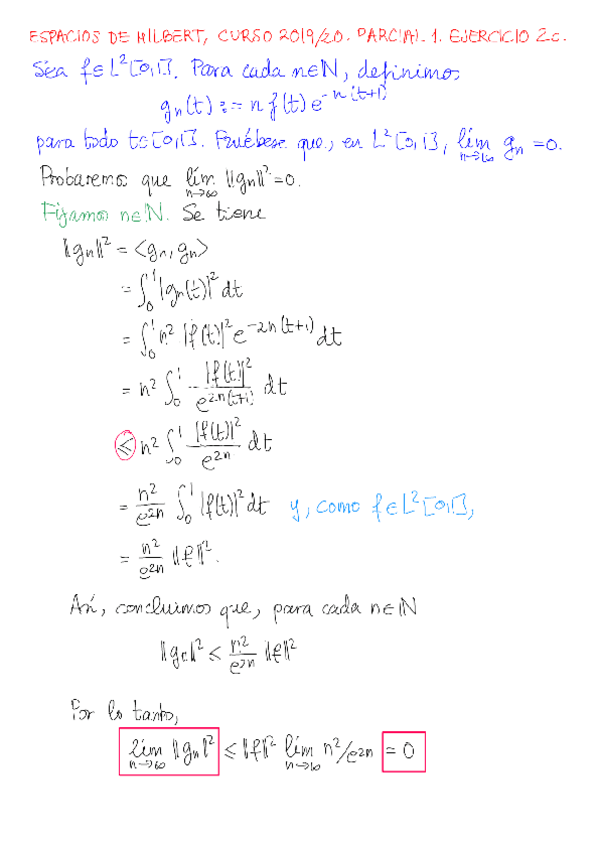 ESPACIOS DE HILBERT, CURSO 2019/20. PARCIAL 1. EJERCICIO 2c.
Sea f∈L²[0,1]. Para cada n∈N, definimos
gₙ(t) := n f(t) e^{-n(t+1)}
para todo t∈[0,1]. Pruébese que, en L²[0,1], lím_{n→∞} gₙ = 0.
Probaremos que lím_{n→∞} ‖gₙ‖² = 0.
Fijamos n∈N. Se tiene
‖gₙ‖² = <gₙ, gₙ>
= ∫₀¹ |gₙ(t)|² dt
= ∫₀¹ n² |f(t)|² e^{-2n(t+1)} dt
= n² ∫₀¹ |f(t)|²/e^{2n(t+1)} dt
≤ n² ∫₀¹ |f(t)|²/e^{2n} dt
= n²/e^{2n} ∫₀¹ |f(t)|² dt y, como f∈L²[0,1],
= n²/e^{2n} ‖f‖².
Así, concluimos que, para cada n∈N
‖gₙ‖² ≤ n²/e^{2n} ‖f‖²
Por lo tanto,
lím_{n→∞} ‖gₙ‖² ≤ ‖f‖² lím_{n→∞} n²/e^{2n} = 0